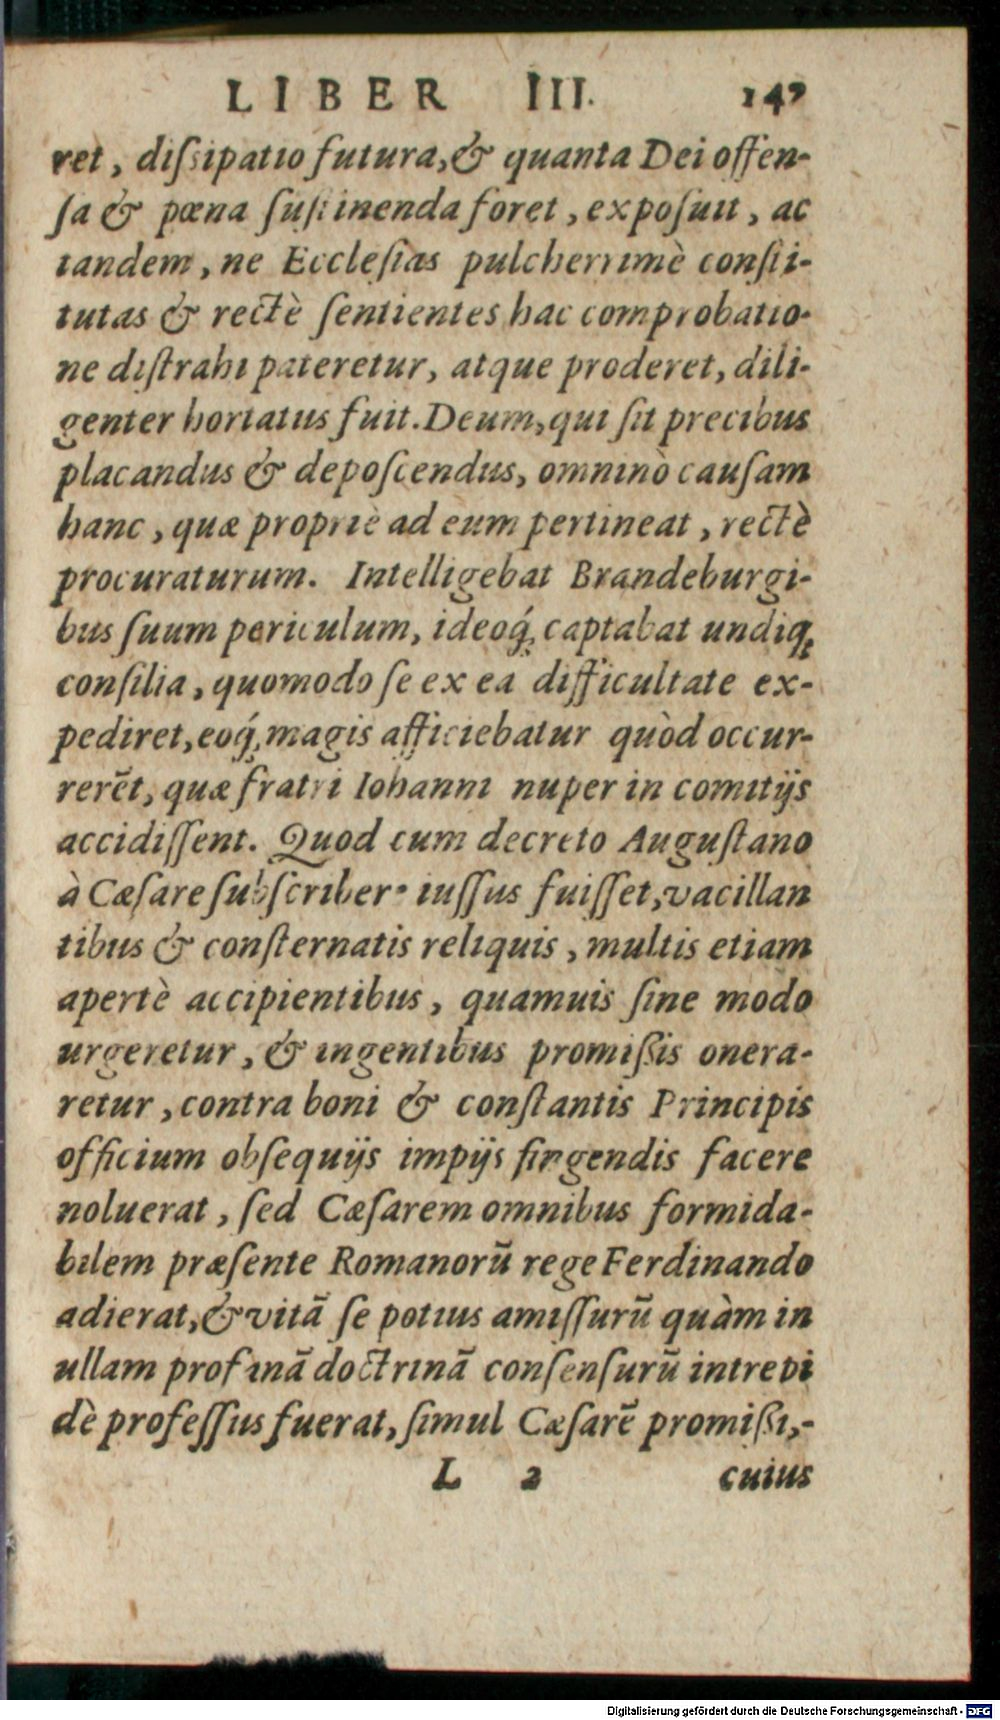 LIBER III. 147
ret, dißipatio futura, & quanta Dei offen-
ſa & pœna ſuſtinenda foret, expoſuit, ac
tandem, ne Eccleſias pulcherrimè conſti-
tutas & rectè ſentientes hac comprobatio-
ne diſtrahi pateretur, atque proderet, dili-
genter hortatus fuit. Deum, qui ſit precibus
placandus & depoſcendus, omninò cauſam
hanc, quæ propriè ad eum pertineat, rectè
procuraturum. Intelligebat Brandeburgi-
bus ſuum periculum, ideoq́; captabat undiq;
conſilia, quomodo ſe ex ea difficultate ex-
pediret, eoq́; magis afficiebatur quòd occur-
rerēt, quæ fratri Iohanni nuper in comitijs
accidiſſent. Quod cum decreto Auguſtano
à Cæſare ſubſcriber iuſſus fuiſſet, vacillan
tibus & conſternatis reliquis, multis etiam
apertè accipientibus, quamuis ſine modo
urgeretur, & ingentibus promißis onera-
retur, contra boni & conſtantis Principis
officium obſequijs impijs fingendis facere
noluerat, ſed Cæſarem omnibus formida-
bilem præſente Romanorū rege Ferdinando
adierat, & vitā ſe potius amiſſurū quàm in
ullam profanā doctrinā conſenſurū intrepi
dè profeſſus fuerat, ſimul Cæſarē promißi,-
L 2 cuius
Digitalisierung gefördert durch die Deutsche Forschungsgemeinschaft - DFG